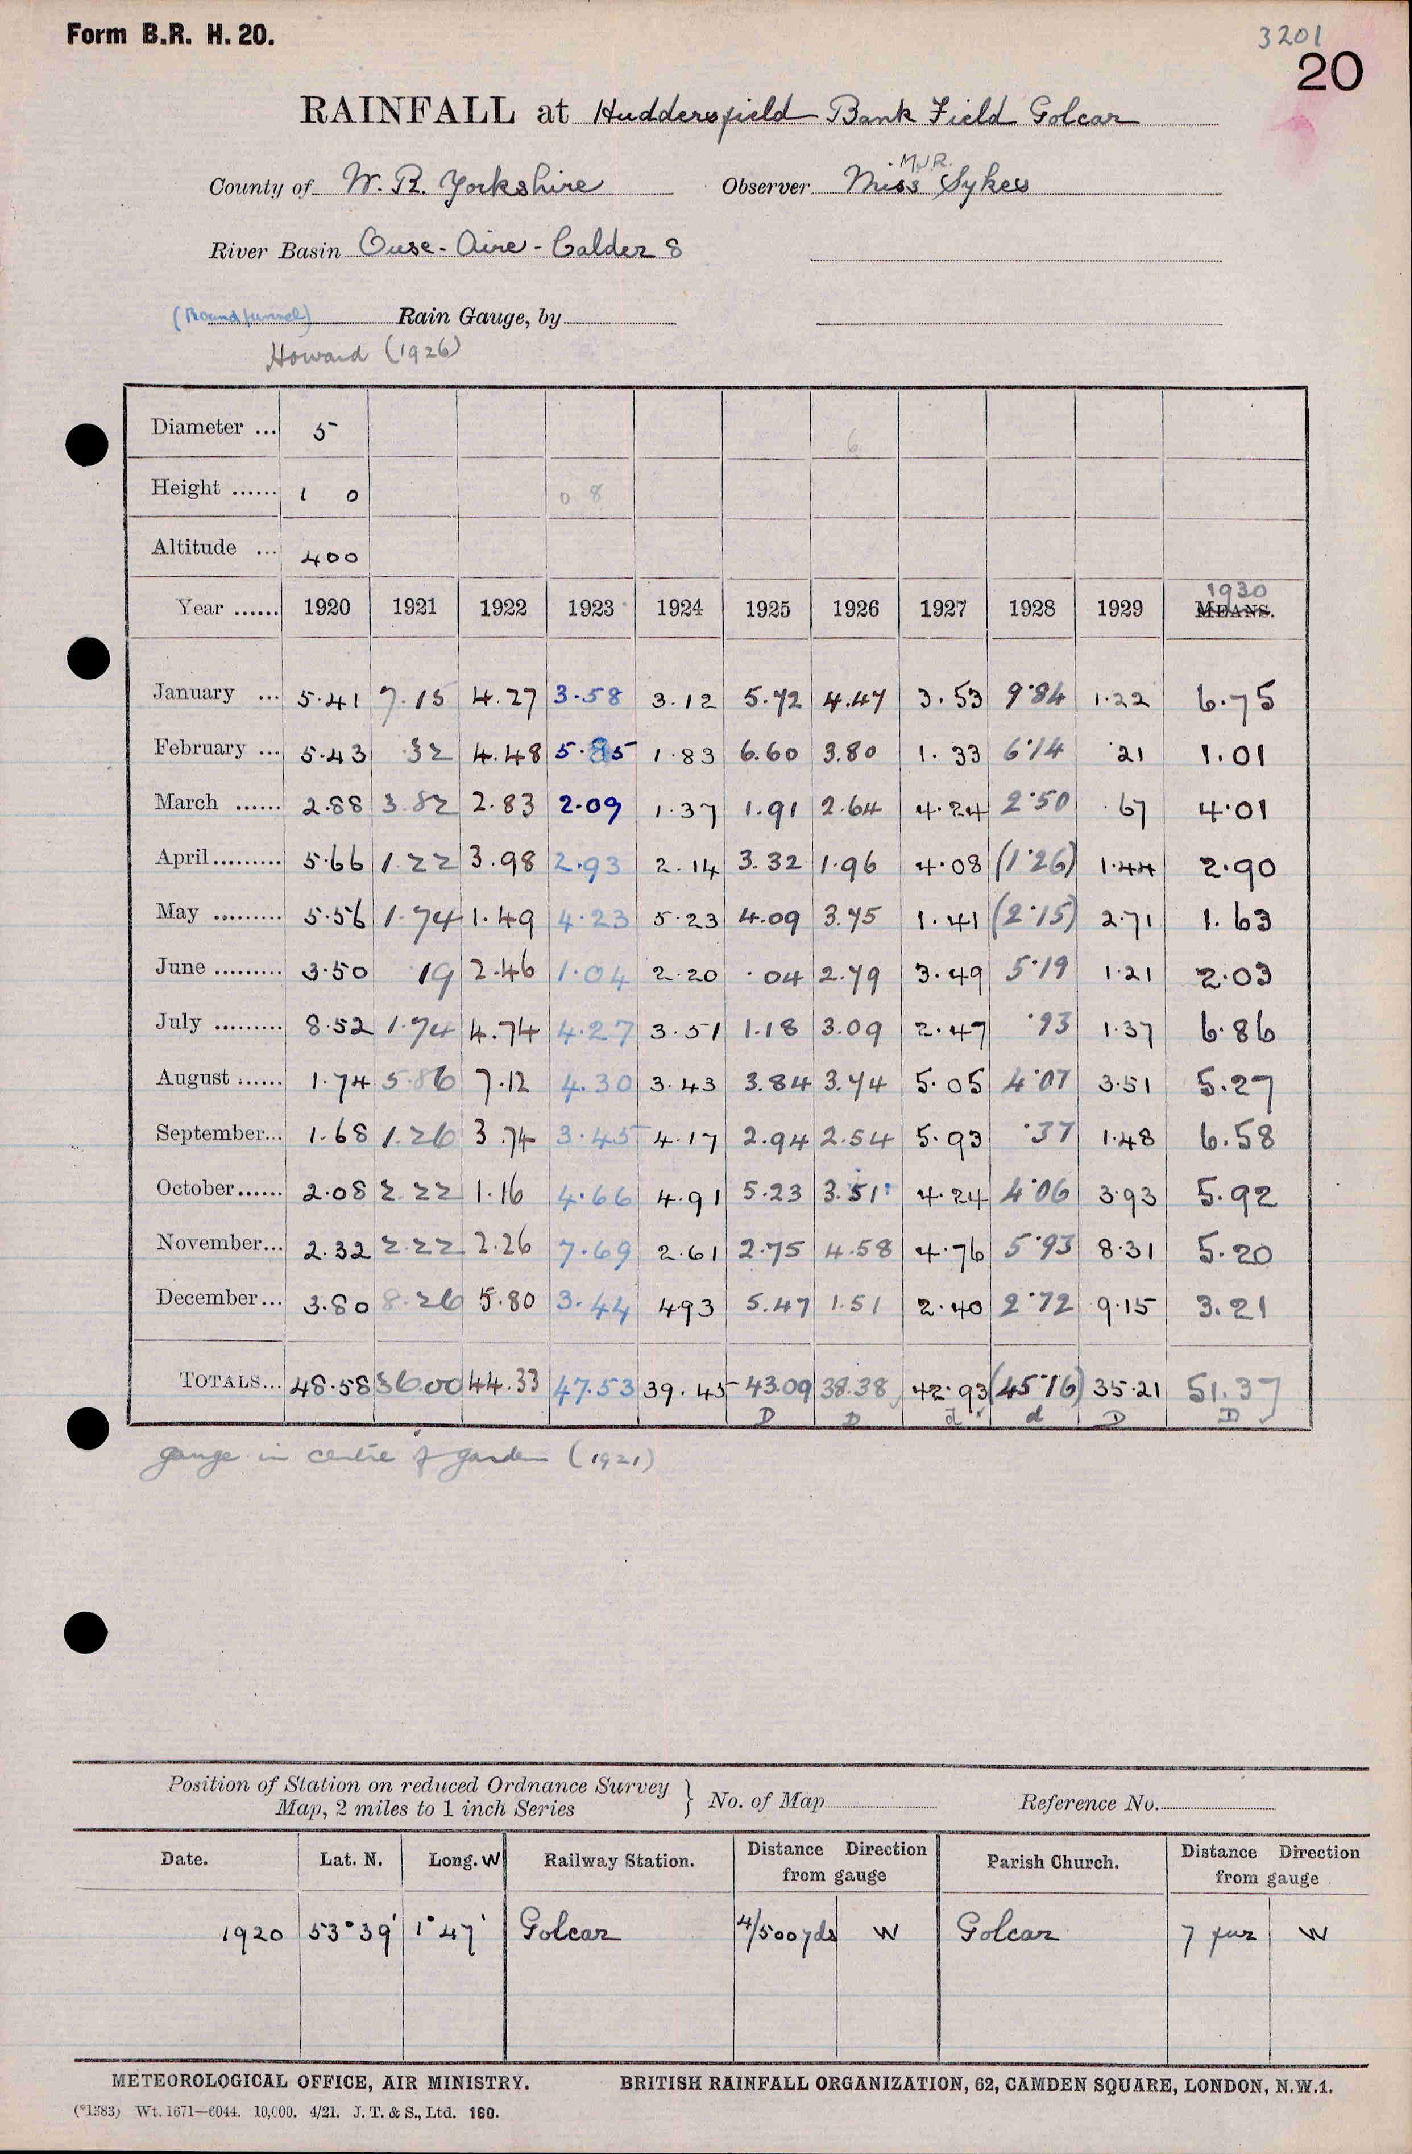 Form B.R. H. 20.
3201
20
RAINFALL at Huddersfield Bank Field Golcar
County of W. R. Yorkshire Observer Miss M.J.R. Sykes
River Basin Ouse - Aire - Calder 8
(Round funnel) Rain Gauge, by
Howard (1926)
Diameter ... 5 6
Height ...... 1 0 0 8
Altitude ... 400
Year ...... 1920 1921 1922 1923 1924 1925 1926 1927 1928 1929 1930 MEANS.
January ... 5.41 7.15 4.27 3.58 3.12 5.72 4.47 3.53 9.84 1.22 6.75
February ... 5.43 .32 4.48 5.85 1.83 6.60 3.80 1.33 6.14 .21 1.01
March ...... 2.88 3.82 2.83 2.09 1.37 1.91 2.64 4.24 2.50 .67 4.01
April ......... 5.66 1.22 3.98 2.93 2.14 3.32 1.96 4.08 (1.26) 1.44 2.90
May ......... 5.56 1.74 1.49 4.23 5.23 4.09 3.75 1.41 (2.15) 2.71 1.63
June ......... 3.50 19 2.46 1.04 2.20 .04 2.79 3.49 5.19 1.21 2.03
July ......... 8.52 1.74 4.74 4.27 3.51 1.18 3.09 2.47 .93 1.37 6.86
August ...... 1.74 5.86 7.12 4.30 3.43 3.84 3.74 5.05 4.07 3.51 5.27
September... 1.68 1.26 3.74 3.45 4.17 2.94 2.54 5.93 .37 1.48 6.58
October...... 2.08 2.22 1.16 4.66 4.91 5.23 3.51 4.24 4.06 3.93 5.92
November... 2.32 2.22 2.26 7.69 2.61 2.75 4.58 4.76 5.93 8.31 5.20
December... 3.80 8.26 5.80 3.44 4.93 5.47 1.51 2.40 2.72 9.15 3.21
TOTALS... 48.58 36.00 44.33 47.53 39.45 43.09 38.38 42.93 (45.16) 35.21 51.37
D D d d D D
gauge in centre of garden (1921)
Position of Station on reduced Ordnance Survey
Map, 2 miles to 1 inch Series } No. of Map Reference No.
Date. Lat. N. Long. W Railway Station. Distance Direction from gauge Parish Church. Distance Direction from gauge
1920 53°39' 1°47' Golcar 4/500 yds W Golcar 7 fur W
METEOROLOGICAL OFFICE, AIR MINISTRY. BRITISH RAINFALL ORGANIZATION, 62, CAMDEN SQUARE, LONDON, N.W.1.
(*1383) Wt. 1671—6044. 10,000. 4/21. J. T. & S., Ltd. 160.